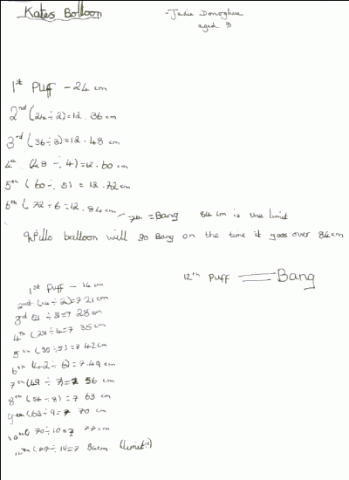 Kates Balloon
- Jadie Donoghue
aged 9
1st Puff - 24 cm
2nd (24 ÷ 2) = 12. 36 cm
3rd (36 ÷ 3) = 12. 48 cm
4th (48 ÷ 4) = 12. 60 cm
5th (60 ÷ 5) = 12. 72 cm
6th (72 ÷ 6 = 12. 84 cm - 7th = Bang 84 cm is the limit
balloon will go Bang on the time it goes over 84 cm
12th Puff = Bang
1st Puff - 14 cm
2nd (14 ÷ 2) = 7 21 cm
3rd 21 ÷ 3 = 7 28 cm
4th (28 ÷ 4 = 7 35 cm
5th (35 ÷ 5) = 7 42 cm
6th (42 ÷ 6) = 7. 49 cm
7th (49 ÷ 7) = 7 56 cm
8th (56 ÷ 8) = 7 63 cm
9th (63 ÷ 9 = 7 70 cm
10th 70 ÷ 10 = 7 77 cm
= 7 84 cm (limit)